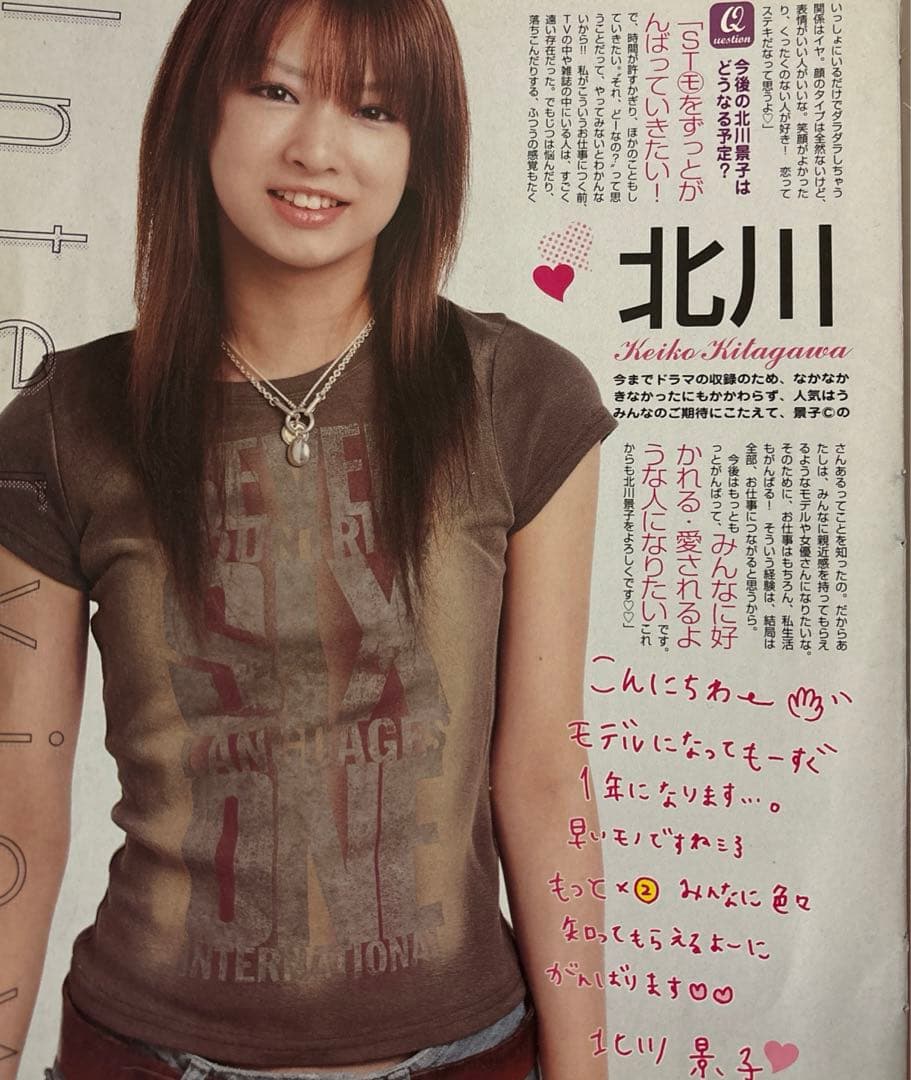 いっしょにいるだけでダラダラしちゃう
関係はイヤ。顔のタイプは全然ないけど、
表情がいい人がいいな。笑顔がよかった
り、くったくのない人が好き！　恋って
ステキだなって思うよ♡」
Question
今後の北川景子は
どうなる予定？
「STモをずっとが
んばっていきたい！
で、時間が許すかぎり、ほかのこともし
ていきたい。“それ、どーなの？”って思
うことだって、やってみないとわかんな
いから!!　私がこういうお仕事につく前、
TVの中や雑誌の中にいる人は、すごく
遠い存在だった。でもじつは悩んだり、
落ちこんだりする、ふつうの感覚もたく
北川
Keiko Kitagawa
今までドラマの収録のため、なかなか
きなかったにもかかわらず、人気はう
みんなのご期待にこたえて、景子©の
さんあるってことを知ったの。だからあ
たしは、みんなに親近感を持ってもらえ
るようなモデルや女優さんになりたいな。
そのために、お仕事はもちろん、私生活
もがんばる！　そういう経験は、結局は
全部、お仕事につながると思うから。
　今後はもっとも
っとがんばって、みんなに好
かれる・愛されるよ
うな人になりたいです。これ
からも北川景子をよろしくです♡♡」
こんにちわー
モデルになってもーすぐ
1年になります…。
早いモノですねミ3
もっと×② みんなに色々
知ってもらえるよーに
がんばります♡♡
北川 景子
Interview
SIX
LANGUAGES
ONE
INTERNATIONAL